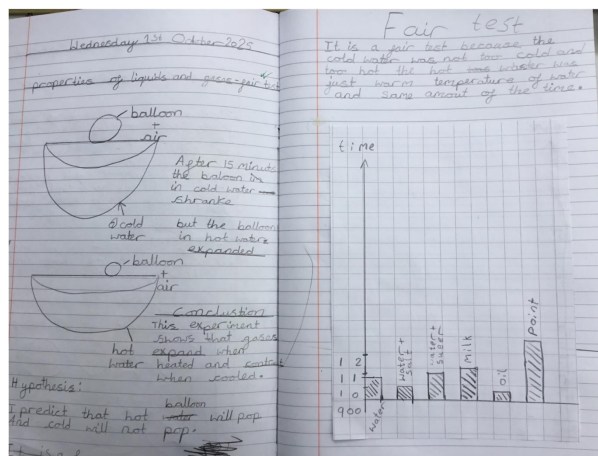 Wednesday 1st October 2025
properties of liquids and gases-fair test
balloon
+
air
After 15 minute
the baloon in
in cold water
shranke
cold
water
but the balloon
in hot watere
expanded
balloon
+
air
hot
water
Conclustion
This experiment
shows that gases
expand when
heated and contact
when cooled.
Hypothesis:
balloon
I predict that hot water will pop
And cold will not pop.
It is a f
Fair test
It is a fair test because the
cold water was not too cold and
too hot the hot was
just warm temperature of water
and same amout of the time.
time
1 2
1 1
1 0
900
water
water+
salt
water+
milk
oil